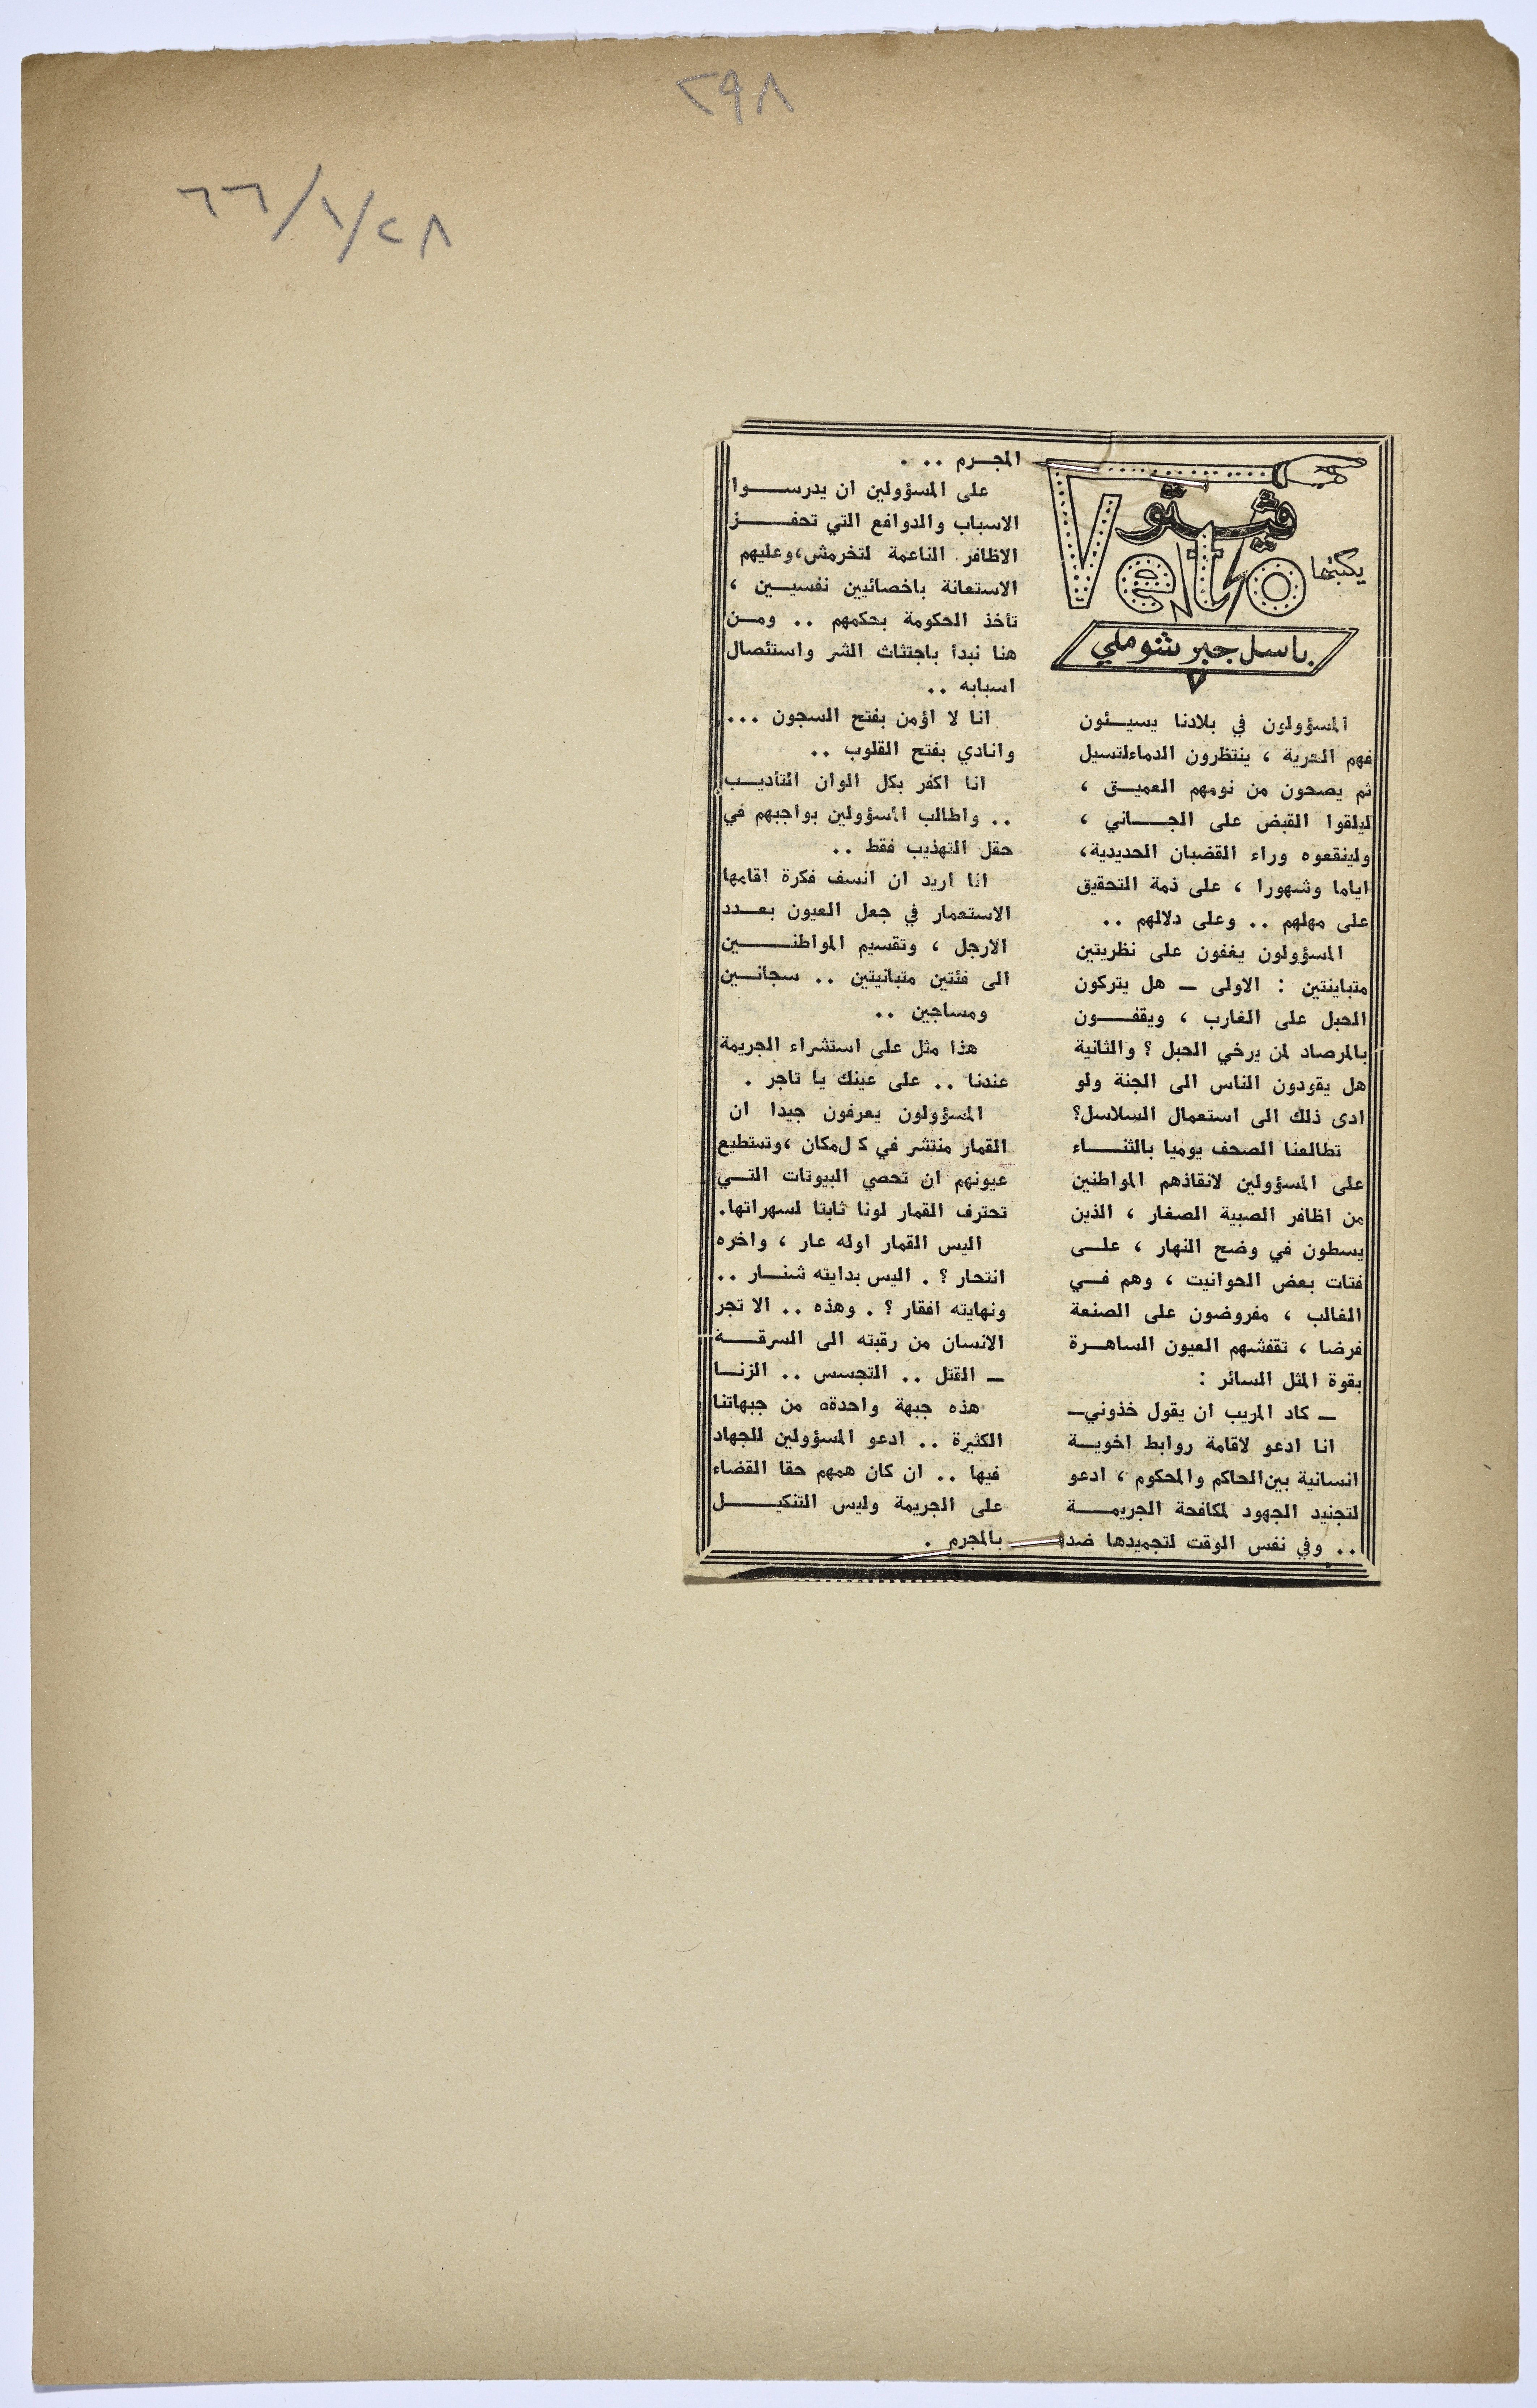 ٢٩٨
٢٨/١/٦٦
ڤيتو
Veto
يكتبها
باسل جبر شوملي
المسؤولون في بلادنا يسيئون
فهم الحرية ، ينتظرون الدماءلتسيل
ثم يصحون من نومهم العميق ،
ليلقوا القبض على الجاني ،
ولينقعوه وراء القضبان الحديدية،
اياما وشهورا ، على ذمة التحقيق
على مهلهم .. وعلى دلالهم ..
المسؤولون يغفون على نظريتين
متباينتين : الاولى — هل يتركون
الحبل على الغارب ، ويقفون
بالمرصاد لمن يرخي الحبل ؟ والثانية
هل يقودون الناس الى الجنة ولو
ادى ذلك الى استعمال السلاسل؟
تطالعنا الصحف يوميا بالثناء
على المسؤولين لانقاذهم المواطنين
من اظافر الصبية الصغار ، الذين
يسطون في وضح النهار ، على
فتات بعض الحوانيت ، وهم في
الغالب ، مفروضون على الصنعة
فرضا ، تقفشهم العيون الساهرة
بقوة المثل السائر :
— كاد المريب ان يقول خذوني—
انا ادعو لاقامة روابط اخوية
انسانية بين الحاكم والمحكوم ، ادعو
لتجنيد الجهود لمكافحة الجريمة
.. وفي نفس الوقت لتجميدها ضد
المجرم .. .
على المسؤولين ان يدرسوا
الاسباب والدوافع التي تحفز
الاظافر الناعمة لتخرمش، وعليهم
الاستعانة باخصائيين نفسيين ،
تأخذ الحكومة بحكمهم .. ومن
هنا نبدأ باجتثاث الشر واستئصال
اسبابه ..
انا لا اؤمن بفتح السجون ...
وانادي بفتح القلوب ..
انا اكفر بكل الوان التأديب
.. واطالب المسؤولين بواجبهم في
حقل التهذيب فقط ..
انا اريد ان انسف فكرة اقامها
الاستعمار في جعل العيون بعدد
الارجل ، وتقسيم المواطنين
الى فئتين متبانيتين .. سجانين
ومساجين ..
هذا مثل على استشراء الجريمة
عندنا .. على عينك يا تاجر .
المسؤولون يعرفون جيدا ان
القمار منتشر في ك ل مكان ، وتستطيع
عيونهم ان تحصي البيوتات التي
تحترف القمار لونا ثابتا لسهراتها.
اليس القمار اوله عار ، واخره
انتحار ؟ . اليس بدايته شنار ..
ونهايته افقار ؟ . وهذه .. الا تجر
الانسان من رقبته الى السرقة
— القتل .. التجسس .. الزنا
هذه جبهة واحدة من جبهاتنا
الكثيرة .. ادعو المسؤولين للجهاد
فيها .. ان كان همهم حقا القضاء
على الجريمة وليس التنكيل
بالمجرم .